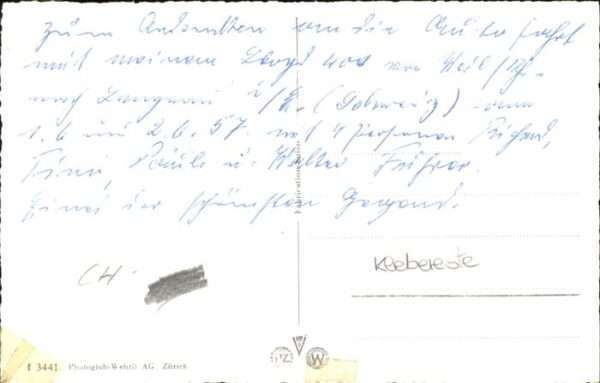 Zum Andenken an die Autofahrt
mit meinem Lloyd 400 von Weil/Rh.
nach Langnau i/E. (Schweiz) am
1.6 und 2.6.57. mit 4 Personen Richard,
Fini, Pauli u. Walter Führer.
Eine der schönsten Gegend.
CH-
Klebereste
I 3441 Photoglob-Wehrli AG. Zürich
PZ
W